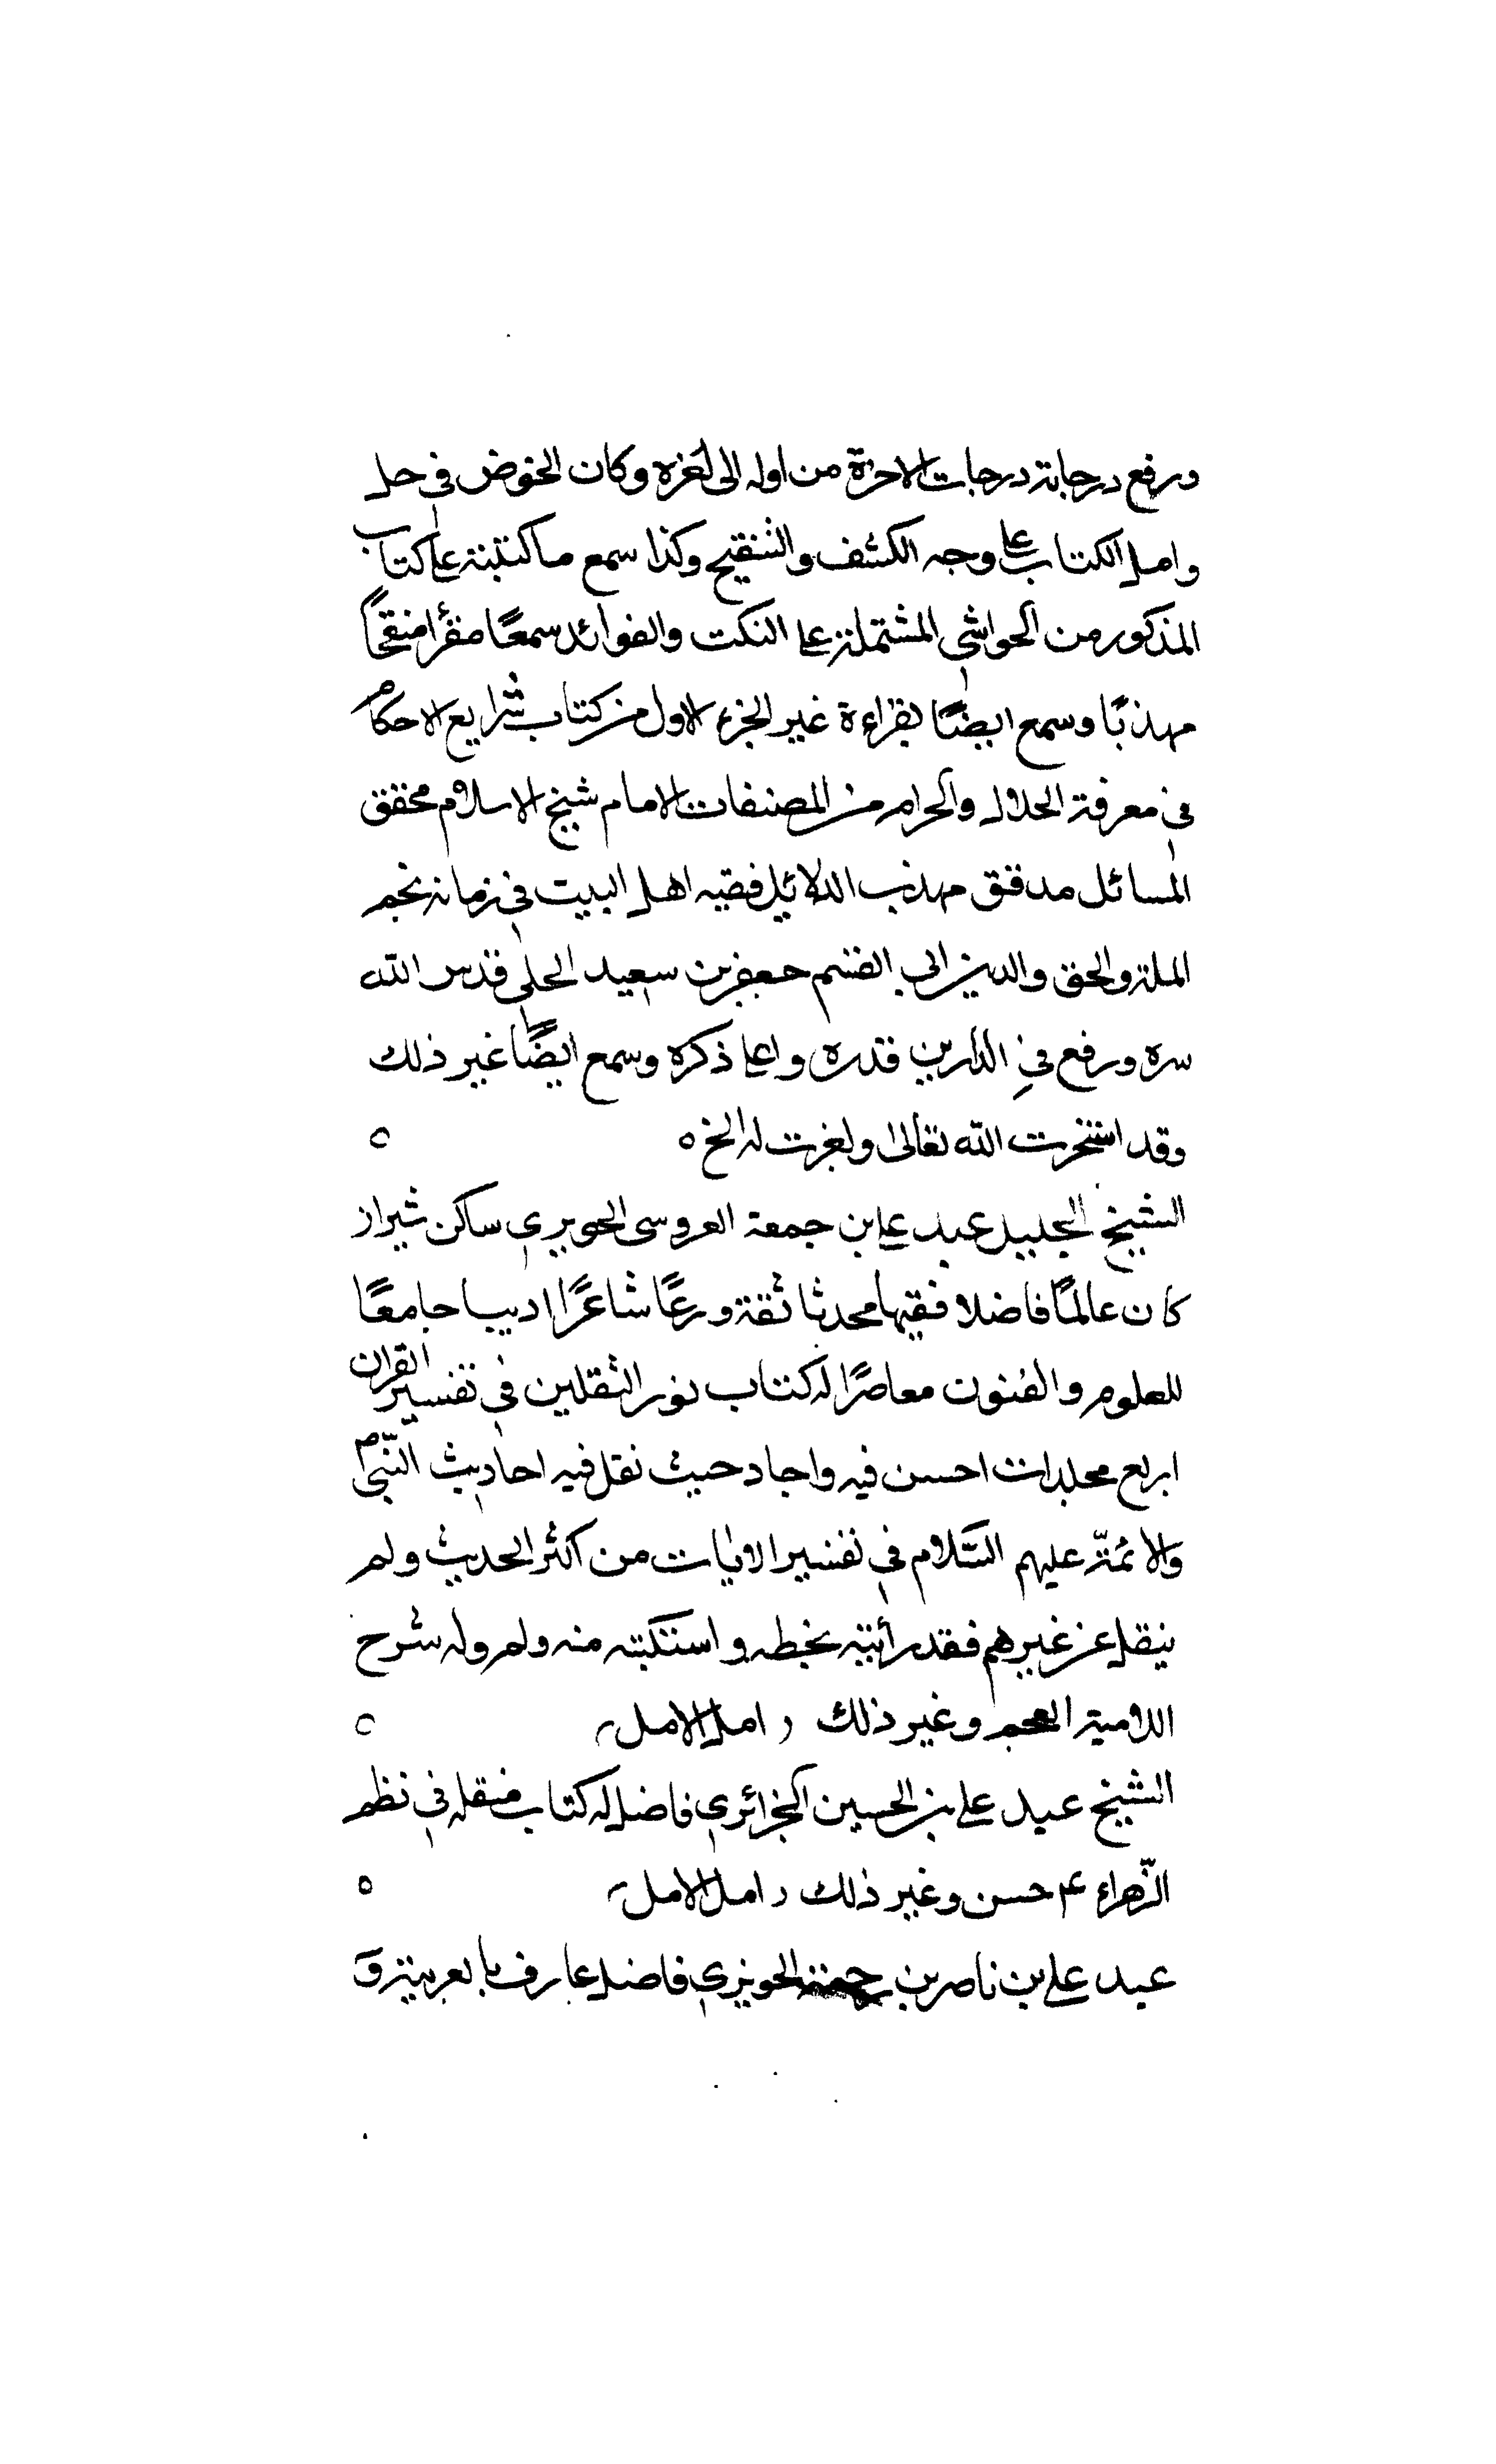 ورفع درجاته درجات الاخرة من اوله الى اخره وكان الخوض في حل
واصل الكتاب على وجه الكشف والتنقيح وكذا سمع ما كتبته على كتاب
المذكور من الحواشي المشتملة على النكت والفوائد سمعًا مقرأ منقحًا
مهذبًا وسمع ايضًا بقراءة غير الجزء الاول من كتاب شرايع الاحكام
في معرفة الحلال والحرام من المصنفات الامام شيخ الاسلام محقق
المسائل مدقق مهذب الدلائل فقيه اهل البيت في زمانه نجم
الملة والحق والدين ابي القسم جعفر بن سعيد الحلي قدس الله
سره ورفع في الدارين قدره واعلا ذكره وسمع ايضًا غير ذلك
وقد استخرت الله تعالى له الخ ه
الشيخ الجليل عبد على بن جمعة العروسى الحويزي ساكن شيراز
كان عالمًا فاضلا فقيها محدثا ثقة ورعًا شاعرًا اديبا جامعًا
للعلوم والفنون معاصرًا له كتاب نور الثقلين في تفسير القران
اربع مجلدات احسن فيه واجاد حيث نقل فيه احاديث النبي ص
والائمة عليهم السلام في تفسير الايات من اكثر الحديث ولم
ينقل عن غيرهم فقد رأيته بخطه واستكتبته منه ولم وله شرح
اللامية العجم وغير ذلك امل الامل
الشيخ عبد على بن الحسين الجزائري فاضل له كتاب في نظم
الزهراء حسن وغير ذلك امل الامل ه
عبد على بن ناصر بن رحمة الحويزي فاضل عارف بالعربية و